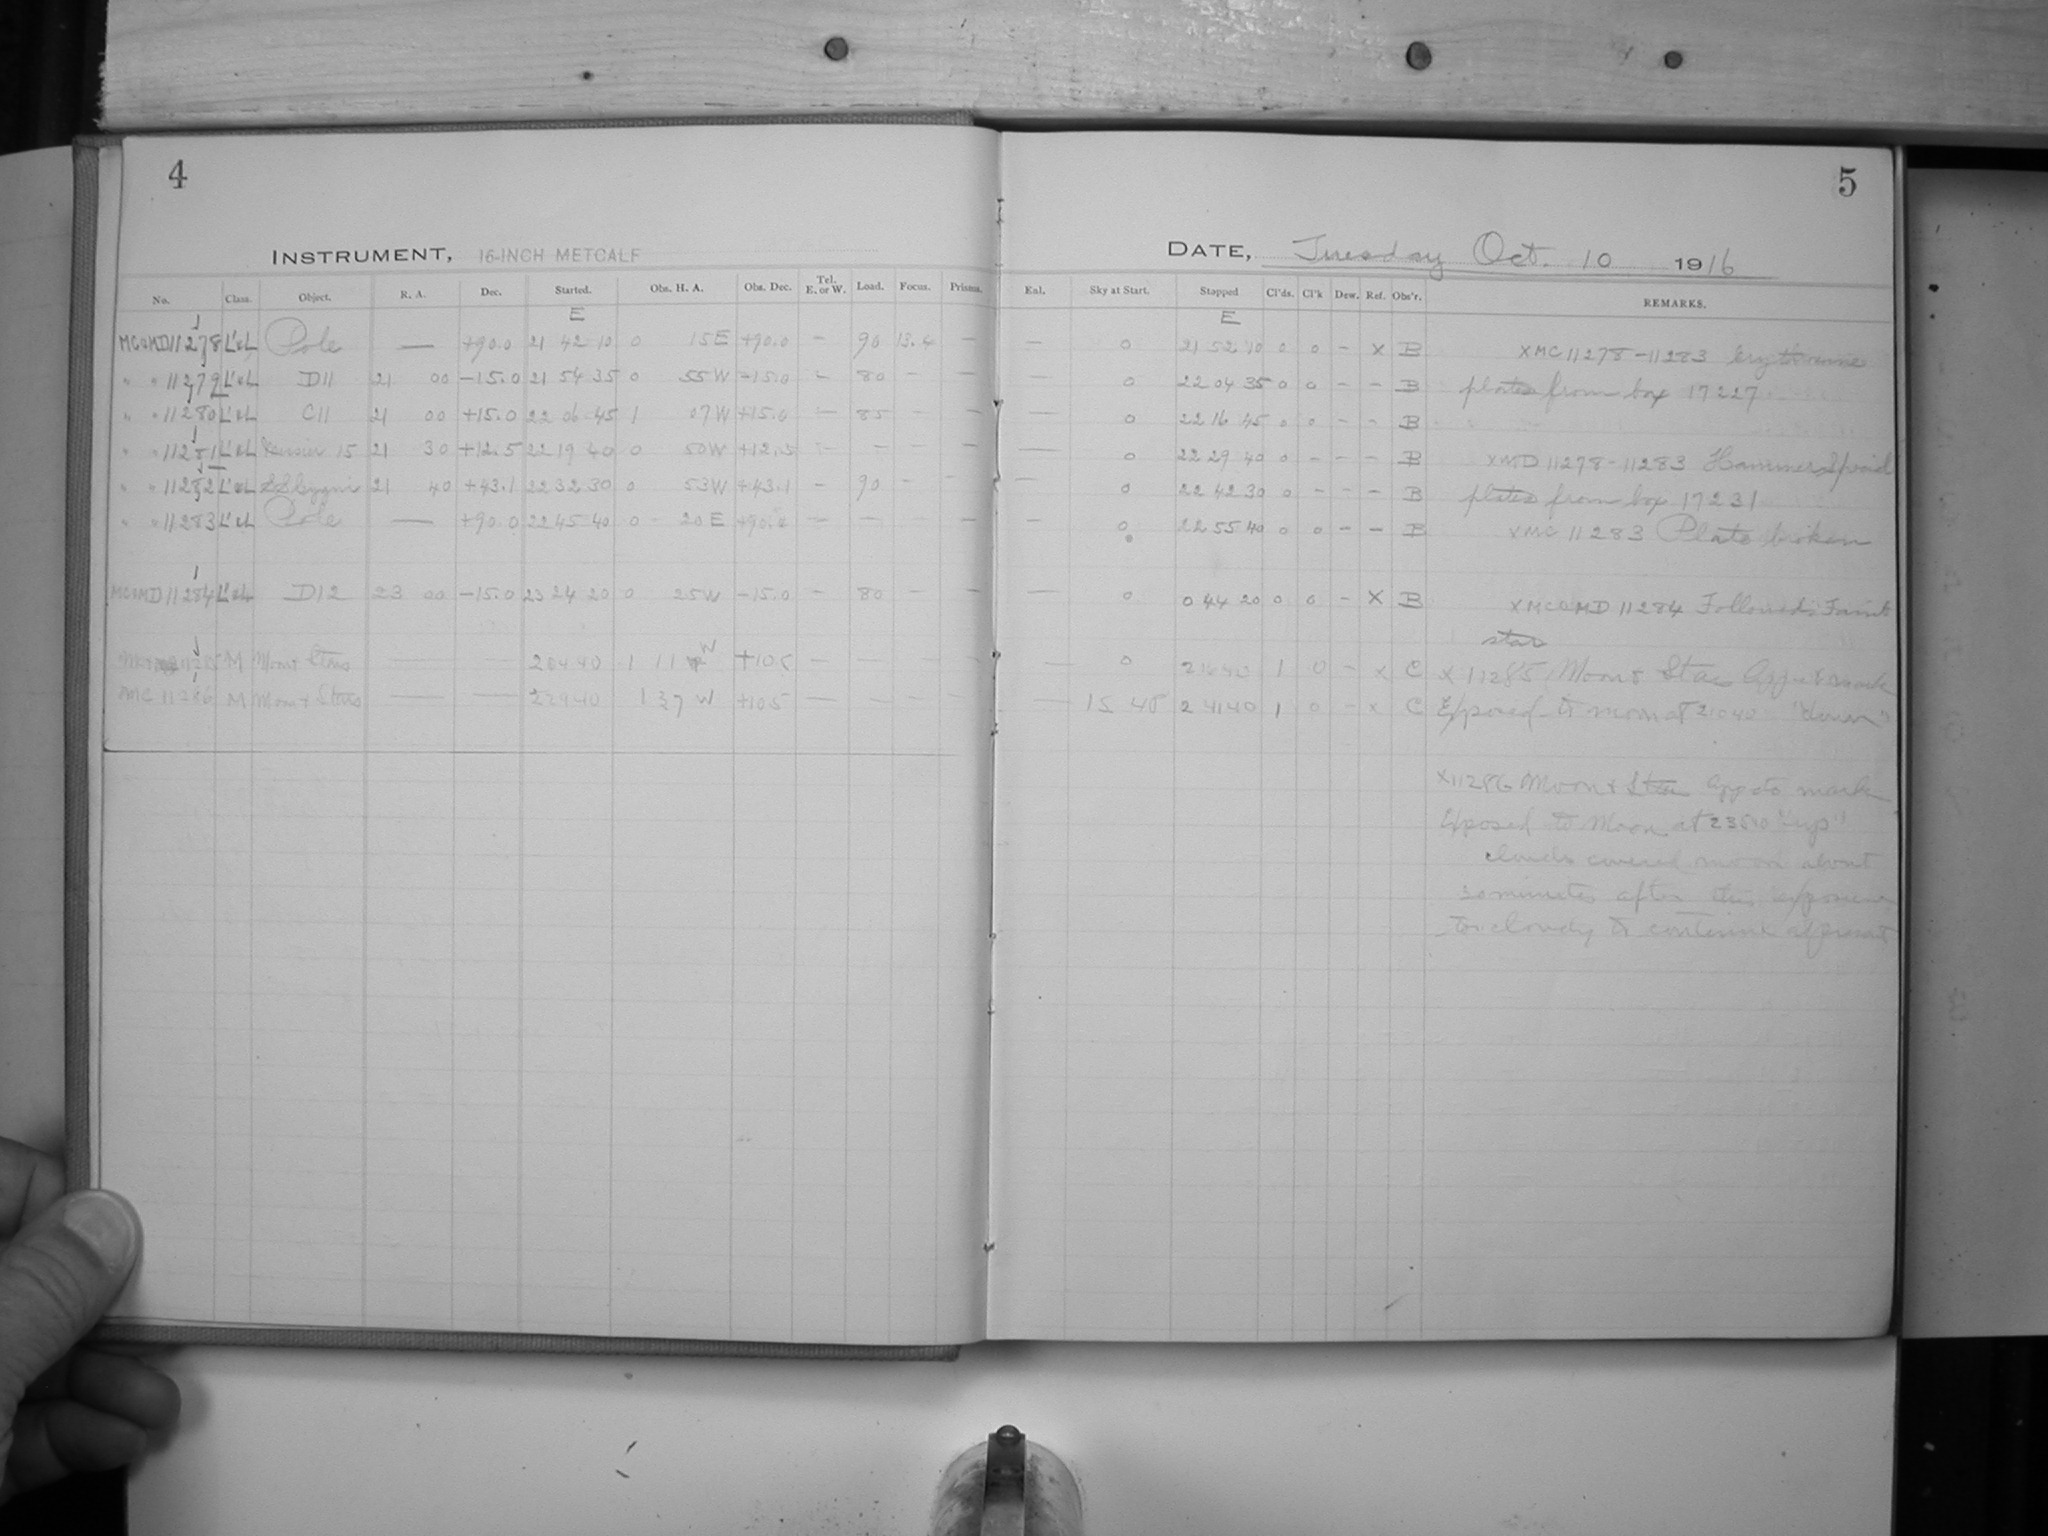 4
5
INSTRUMENT, 16-INCH METCALF
DATE, Tuesday Oct. 10 1916
No. Class. Object. R. A. Dec. Started. Obs. H. A. Obs. Dec. Tel. E. or W. Load. Focus. Prisms. Eal. Sky at Start. Stopped Cl'ds. Cl'k Dew. Ref. Obs'r. REMARKS.
E E
MC&MD 11278 L&L Pole — +90.0 21 42 10 0 15 E +90.0 — 90 13.4 — — 0 21 52 10 0 0 — x B xMC 11278-11283
" " 11279 L&L D11 21 00 -15.0 21 54 35 0 55 W -15.0 — 80 — — — 0 22 04 35 0 0 — — B plates from box 17227
" " 11280 L&L C11 21 00 +15.0 22 06 45 1 07 W +15.0 — 85 — — — 0 22 16 45 0 0 — — B
" " 11281 L&L 15 21 30 +12.5 22 19 40 0 50 W +12.5 — — — — — 0 22 29 40 0 — — — B xMD 11278-11283 Hammer Special
" " 11282 L&L SS Cygni 21 40 +43.1 22 32 30 0 53 W +43.1 — 90 — — — 0 22 42 30 0 — — — B plates from box 17231
" " 11283 L&L Pole — +90.0 22 45 40 0 20 E +90.0 — — — — 0 22 55 40 0 0 — — B xMC 11283 Plate broken
MC&MD 11284 L&L D12 23 00 -15.0 23 24 20 0 25 W -15.0 — 80 — — — 0 0 44 20 0 0 — x B xMC&MD 11284 Followed. Faint
star
11285 M Moon & Stars — — 20440 1 11 W +105 — — — — — 0 21640 1 0 — x C x 11285 Moon & Stars
MC 11286 M Moon & Stars — — 22940 1 37 W +105 — — — — — 15 45 24140 1 0 — x C Exposed to moon at 21040 "down"
x11286 Moon & Stars mark
Exposed to Moon at 23540 "up"
clouds covered moon about
minutes after this exposure
Too cloudy to continue at present